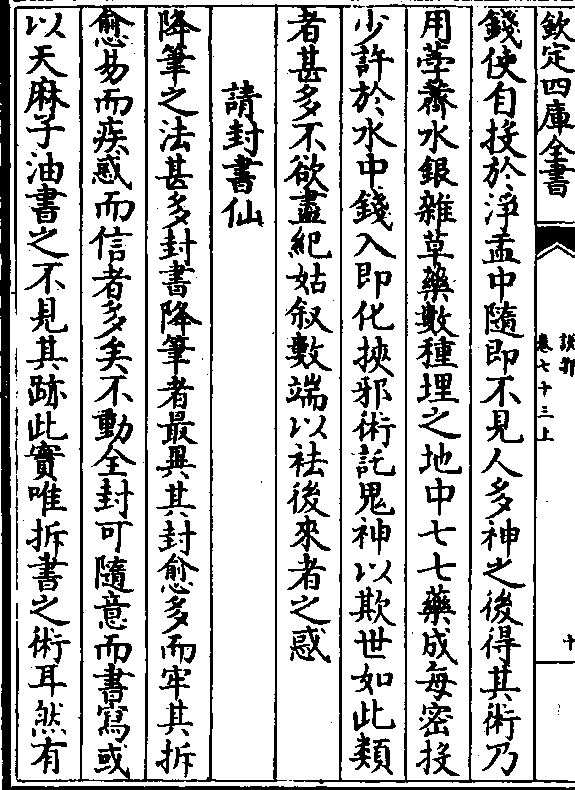 欽定四庫全書
說郛
卷七十三上
十
錢使自投於淨盂中隨即不見人多神之後得其術乃
用荸薺水銀雜草藥數種埋之地中七七藥成每密投
少許於水中錢入即化挾邪術託鬼神以欺世如此類
者甚多不欲盡紀姑叙數端以袪後來者之惑
請封書仙
降筆之法甚多封書降筆者最異其封愈多而牢其拆
愈易而疾惑而信者多矣不動全封可隨意而書寫或
以天麻子油書之不見其跡此實唯拆書之術耳然有